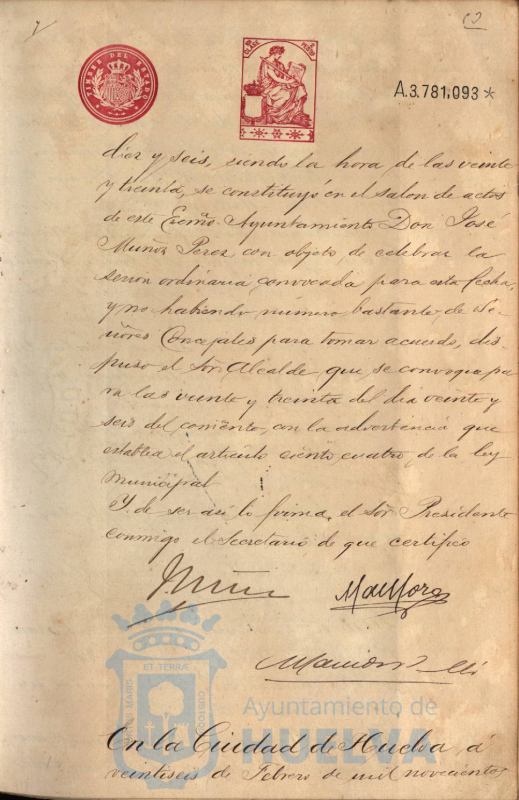 TIMBRE DEL ESTADO
A.3.781,093*
diez y seis, siendo la hora de las veinte
y treinta, se constituyó en el salon de actos
de este Excmo. Ayuntamiento Don José
Muñoz Perez con objeto de celebrar la
sesion ordinaria convocada para esta fecha,
y no habiendo número bastante de Se-
ñores Concejales para tomar acuerdo, dis-
puso el Sor. Alcalde que se convoque pa
ra las veinte y treinta del dia veinte y
seis del corriente, con la advertencia que
establece el articulo ciento cuatro de la ley
Municipal
Y de ser asi lo firma el Sor Presidente
conmigo el Secretario de que certifico
ET TERRÆ
Ayuntamiento de
HUELVA
En la Ciudad de Huelva á
veintiseis de Febrero de mil novecientos